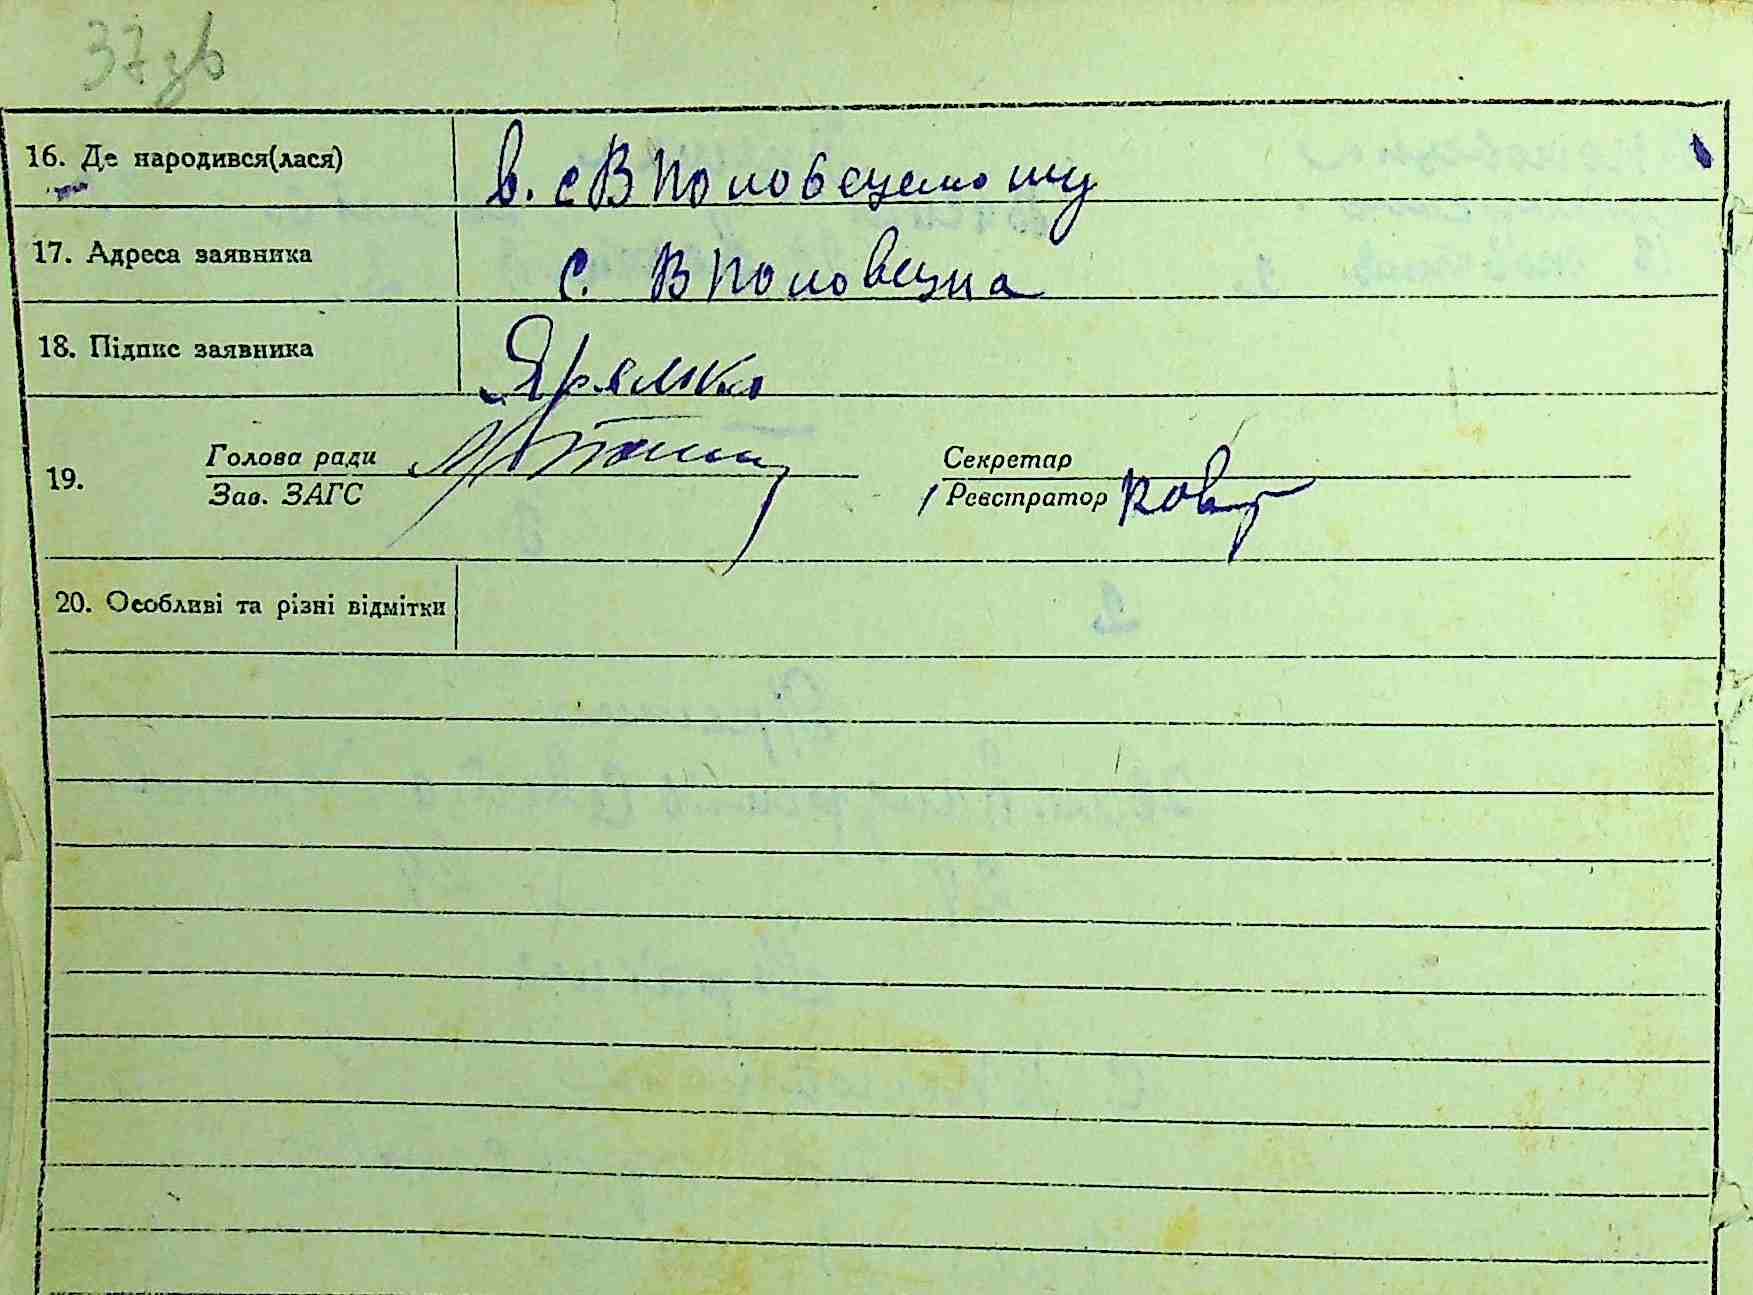 37 зв
16. Де народився(лася) в. с В Половецькому
17. Адреса заявника с. В Половецка
18. Підпис заявника Яремко
19. Голова ради Секретар
Зав. ЗАГС Реєстратор
20. Особливі та різні відмітки